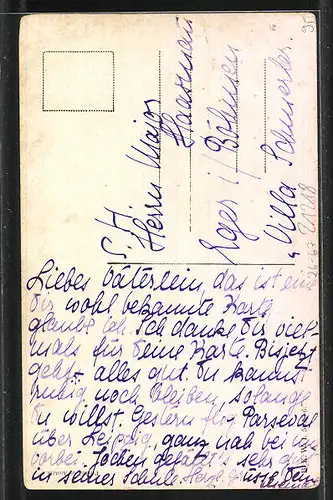 S. H.
Herrn Major
Haarman
Eger i/ Böhmen
"Villa Schmerler.
Liebes Väterlein, das ist eine
dir wohl bekannte Karte
glaube ich. Ich danke dir viel-
mals für deine Karte. Bis jetzt
geht alles gut. du kannst
ruhig noch bleiben, solange
du willst. Gestern flog Parseval
über Leipzig, ganz nah bei uns
vorbei. Jochen gefällt's sehr gut
in seiner Schule. Herzl. Grüsse dein